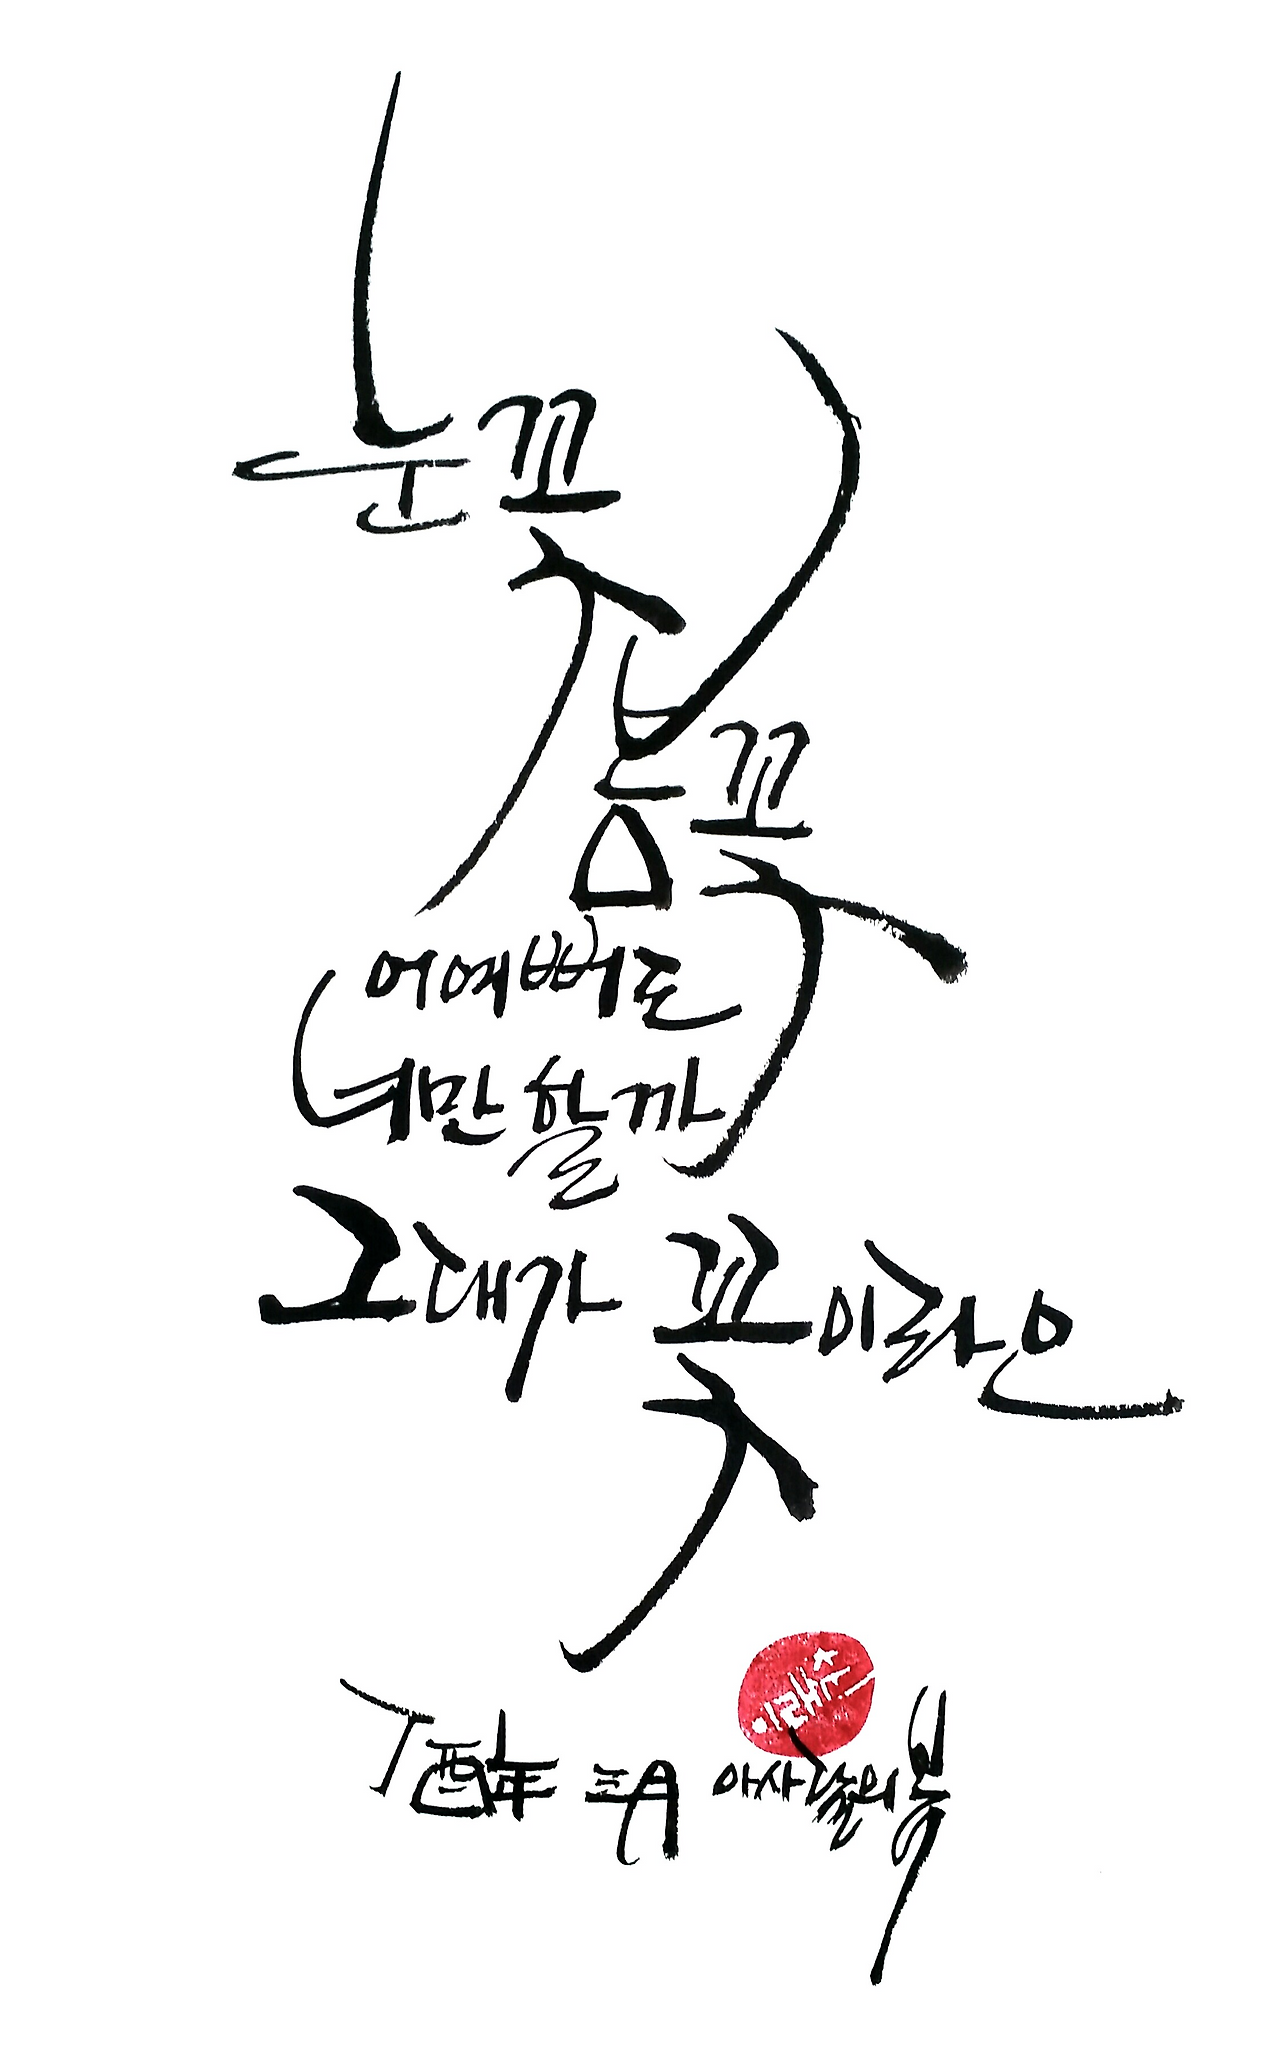 눈꽃
봄꽃
어여뻐도
너만 할까
그대가 꽃이라오
丁酉年 三月 아사달의 붓